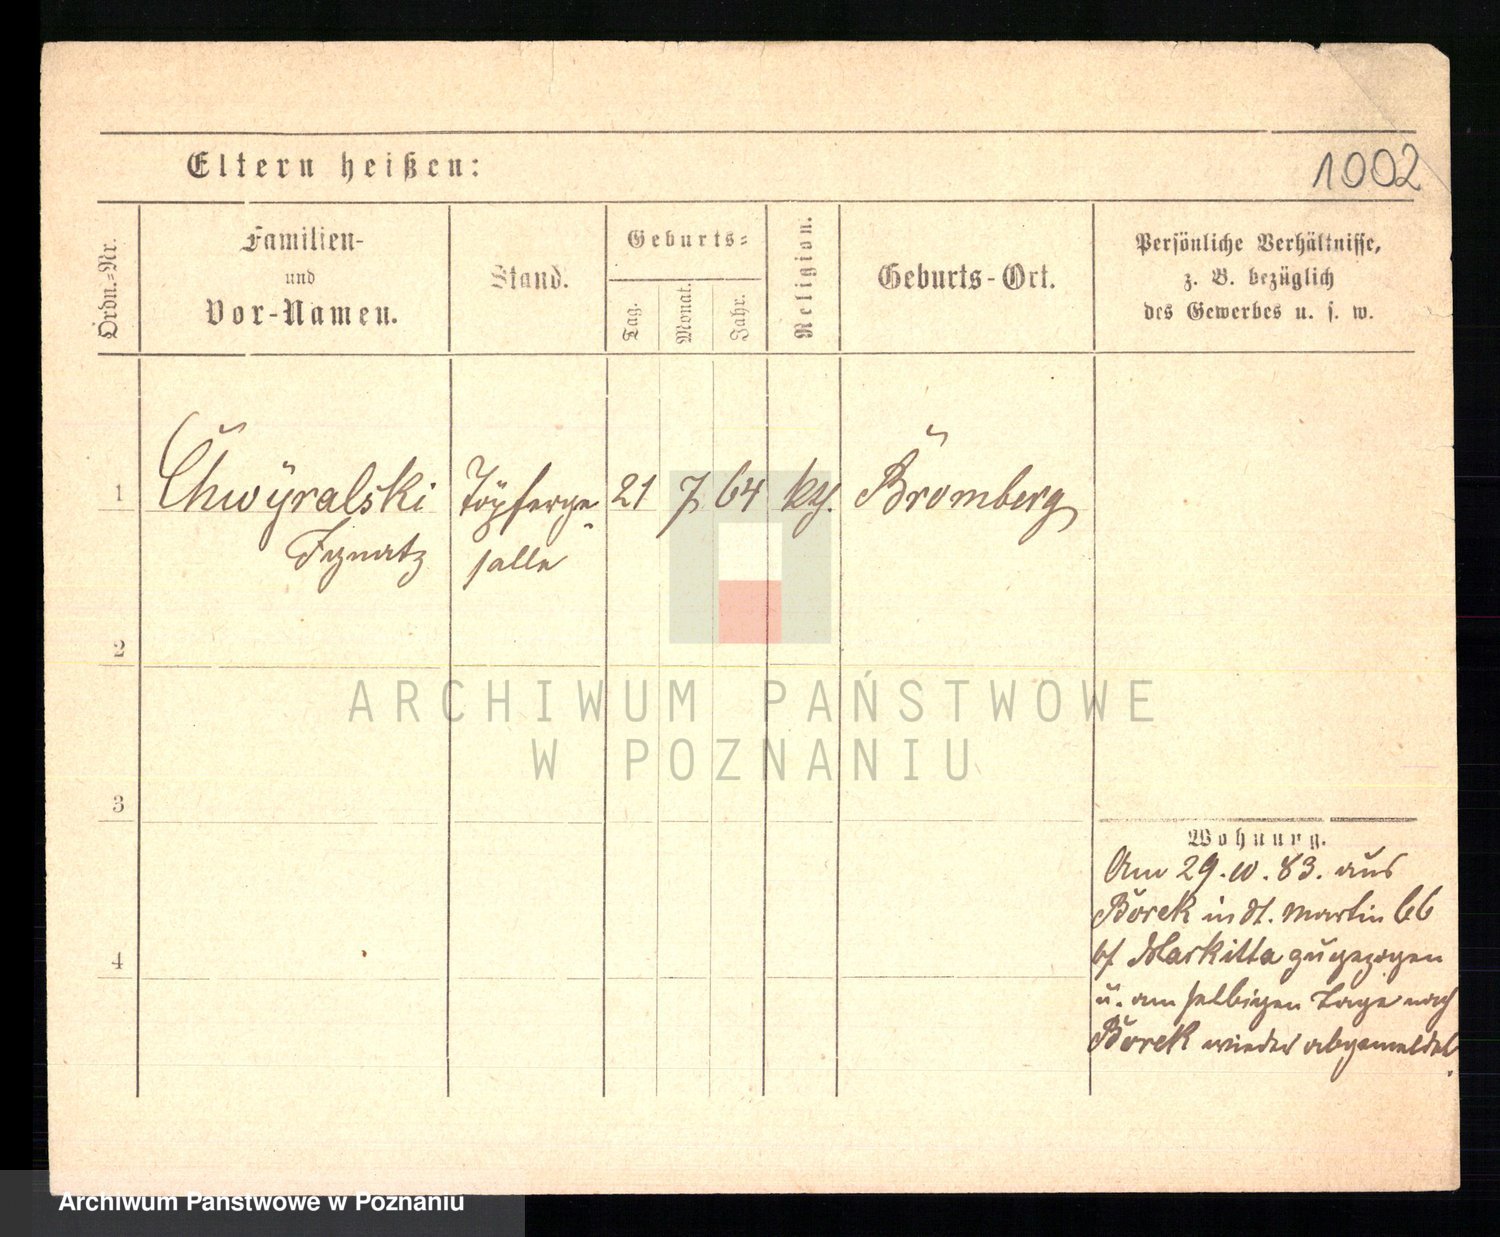 Eltern heißen:
1002
Ordn.-Nr.
Familien-
und
Vor-Namen.
Stand.
Geburts-
Tag.
Monat.
Jahr.
Religion.
Geburts-Ort.
Persönliche Verhältnisse,
z. B. bezüglich
des Gewerbes u. s. w.
1
Chwÿralski
Ignatz
Töpferge-
selle
21
7
64
kth.
Bromberg
2
3
4
Wohnung.
Am 29.10.83. aus
Borek in St. Martin 66
bf Markitta zugezogen
u. am selbigen Tage nach
Borek wieder abgemeldet.
ARCHIWUM PAŃSTWOWE
W POZNANIU
Archiwum Państwowe w Poznaniu